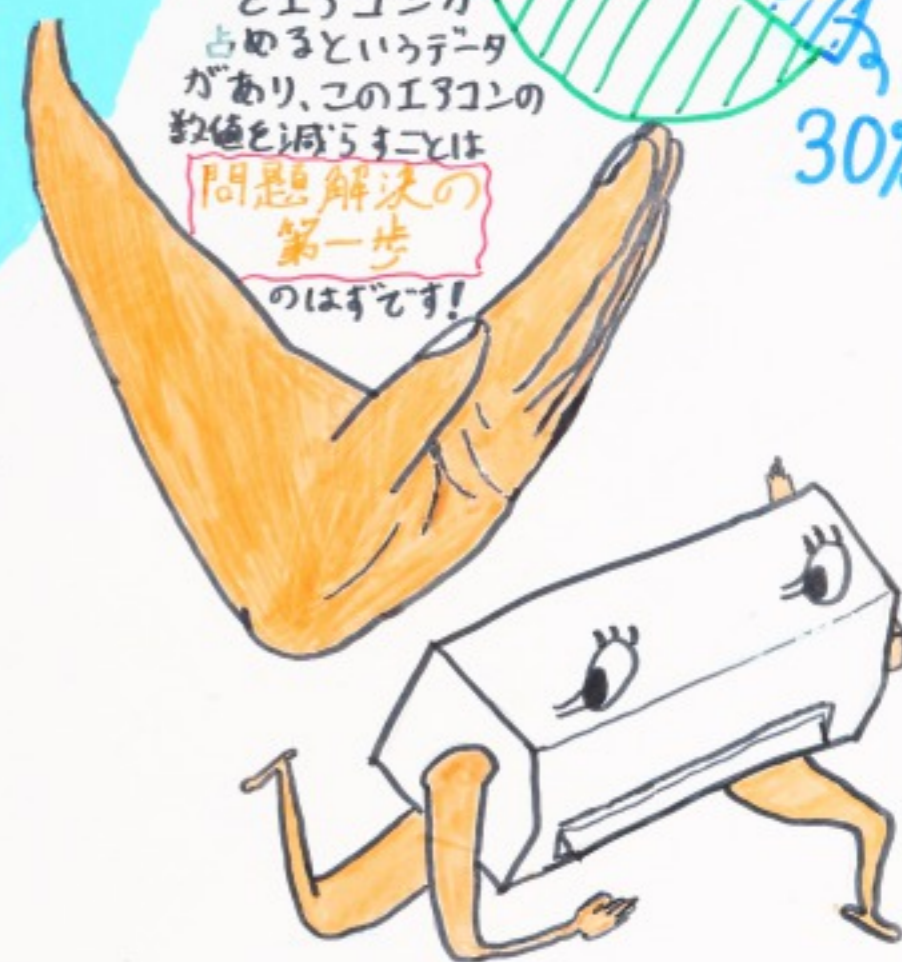 とエアコンが
占めるというデータ
があり、このエアコンの
数値を減らすことは
問題解決の
第一歩
のはずです!
30%